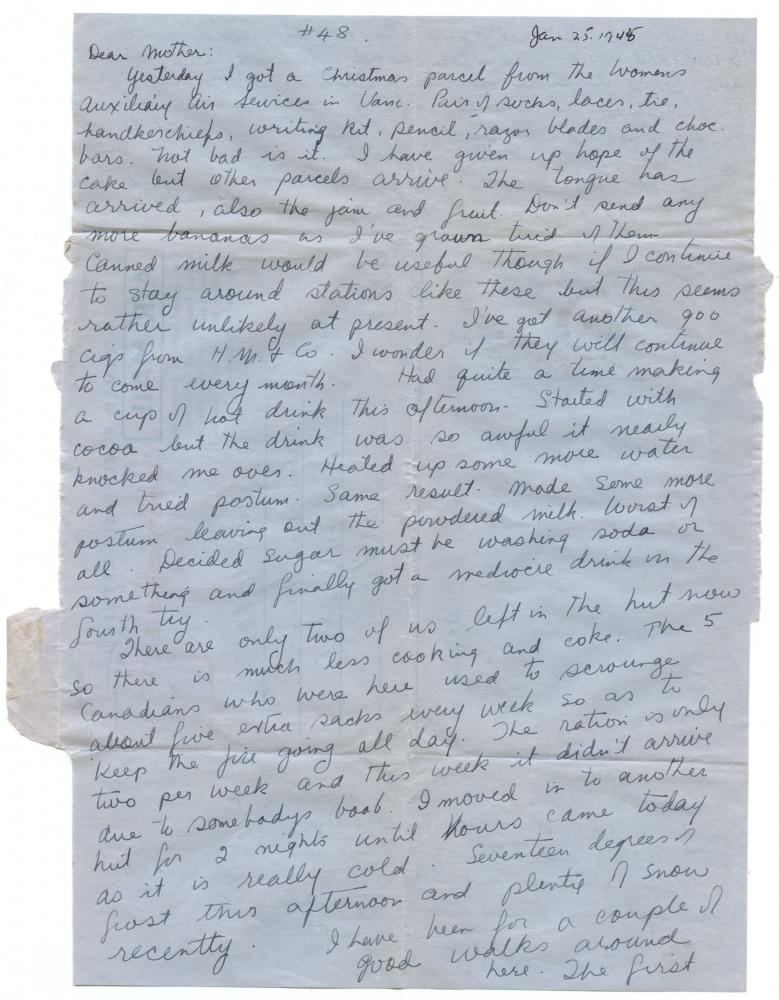 #48.
Jan 25. 1945
Dear Mother:
Yesterday I got a Christmas parcel from the Womens
Auxiliary Air Services in Vanc. Pair of socks, laces, tie,
handkerchiefs, writing kit, pencil, razor blades and choc.
bars. Not bad is it. I have given up hope of the
cake but other parcels arrive. The tongue has
arrived, also the jam and fruit. Don't send any
more bananas as I've grown tired of them.
Canned milk would be useful though if I continue
to stay around stations like these but this seems
rather unlikely at present. I've got another 900
cigs from H.M. & Co. I wonder if they will continue
to come every month. Had quite a time making
a cup of hot drink this afternoon. Started with
cocoa but the drink was so awful it nearly
knocked me over. Heated up some more water
and tried postum. Same result. Made some more
postum leaving out the powdered milk. Worst of
all. Decided sugar must be washing soda or
something and finally got a mediocre drink on the
fourth try.
There are only two of us left in the hut now
so there is much less cooking and coke. The 5
Canadians who were here used to scrounge
about five extra sacks every week so as to
keep the fire going all day. The ration is only
two per week and this week it didn't arrive
due to somebodys boob. I moved in to another
hut for 2 nights until ours came today
as it is really cold. Seventeen degrees of
frost this afternoon and plenty of snow
recently. I have been for a couple of
good walks around
here. The first